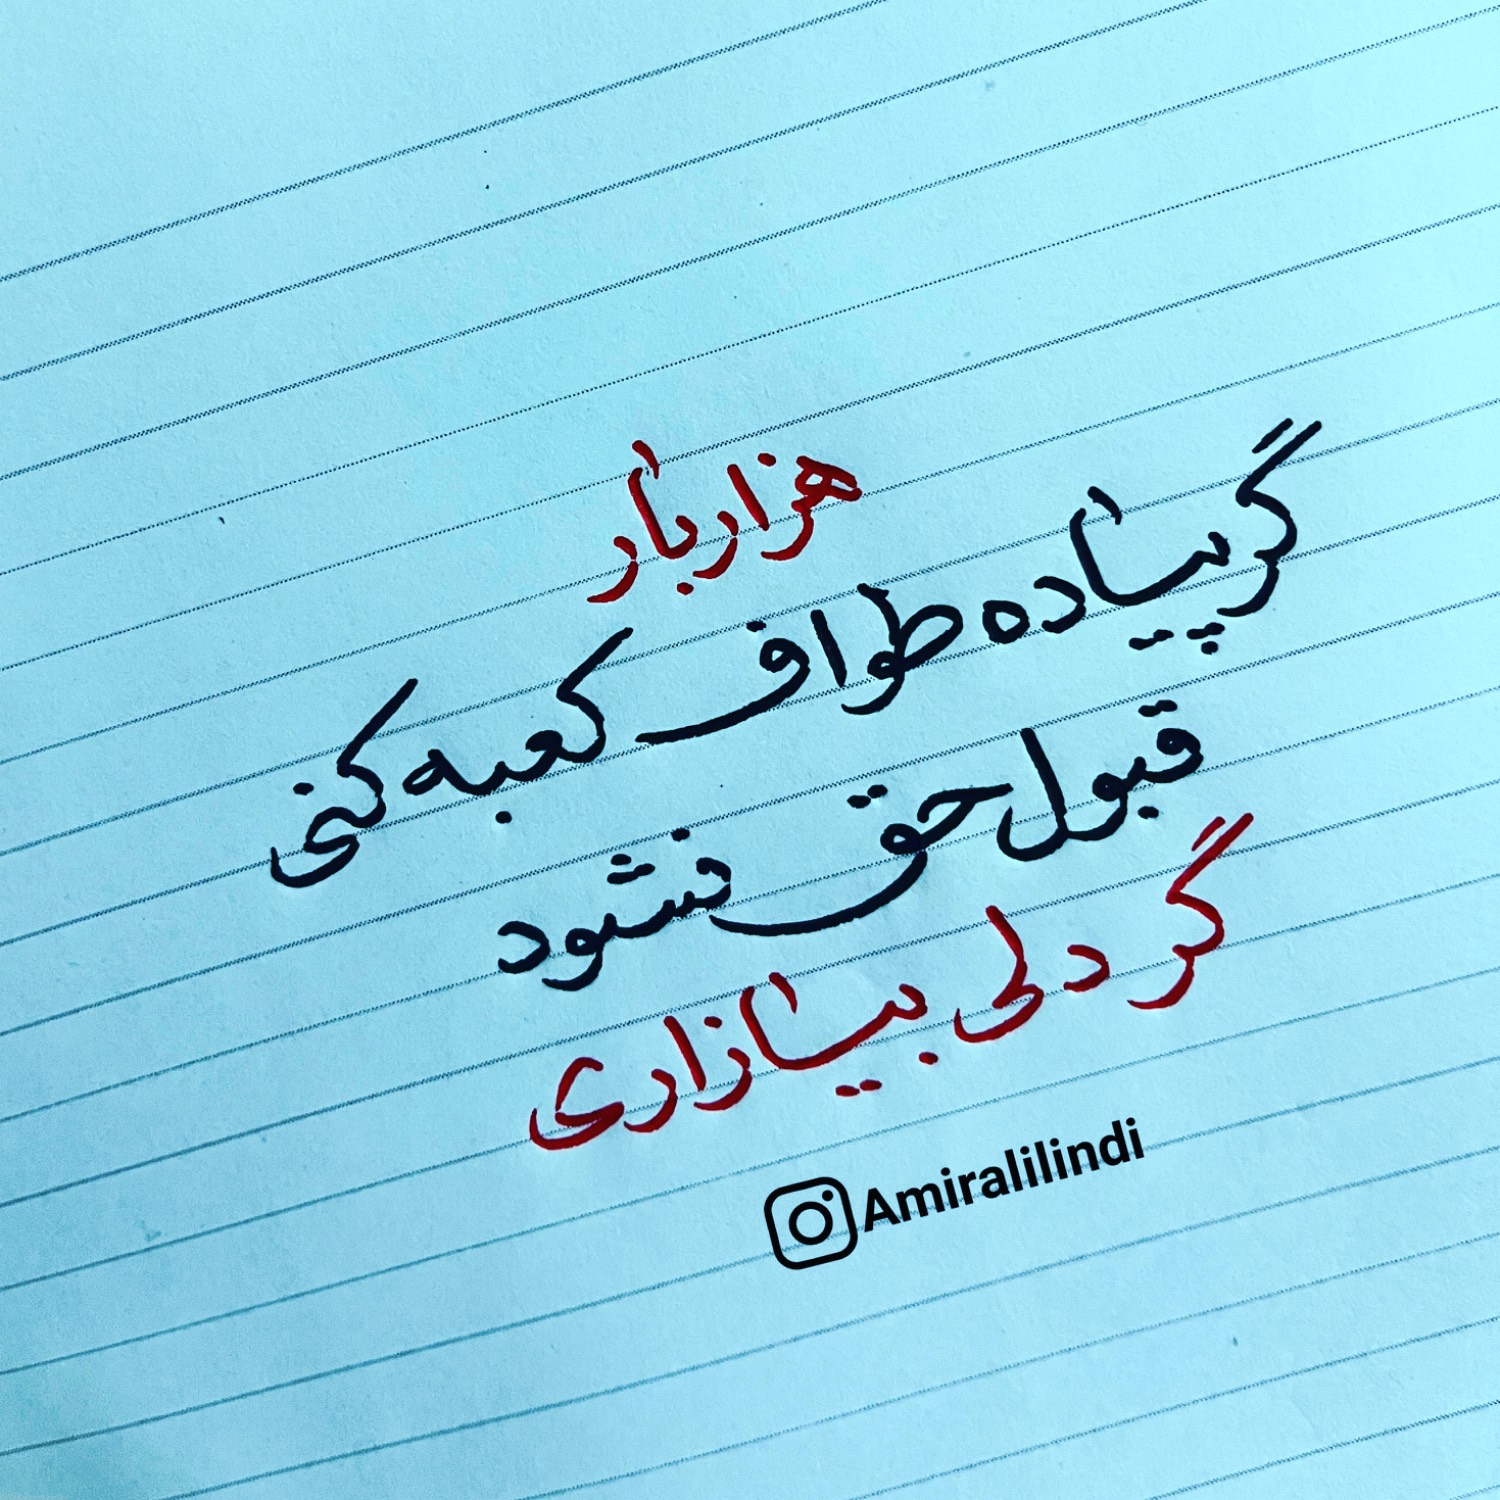 هزار بار
گر پیاده طواف کعبه کنی
قبول حق نشود
گر دلی بیازاری
Amiralilindi